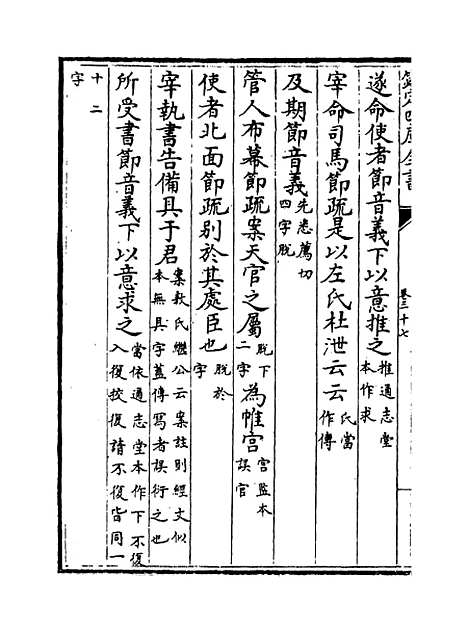 欽定四庫全書
卷三十七
遂命使者節音義下以意推之推通志堂本作求
宰命司馬節疏是以左氏杜泄云云氏當作傳
及期節音義先悉薦切四字脫
管人布幕節疏案天官之屬脫下二字為帷宫宫監本誤官
使者北面節疏别於其處臣也脫於字
宰執書告備具于君案敖氏繼公云案註則經文似本無具字蓋傳寫者誤衍之也
所受書節音義下以意求之當依通志堂本作下不復入復挍復請不復皆同一
十二字